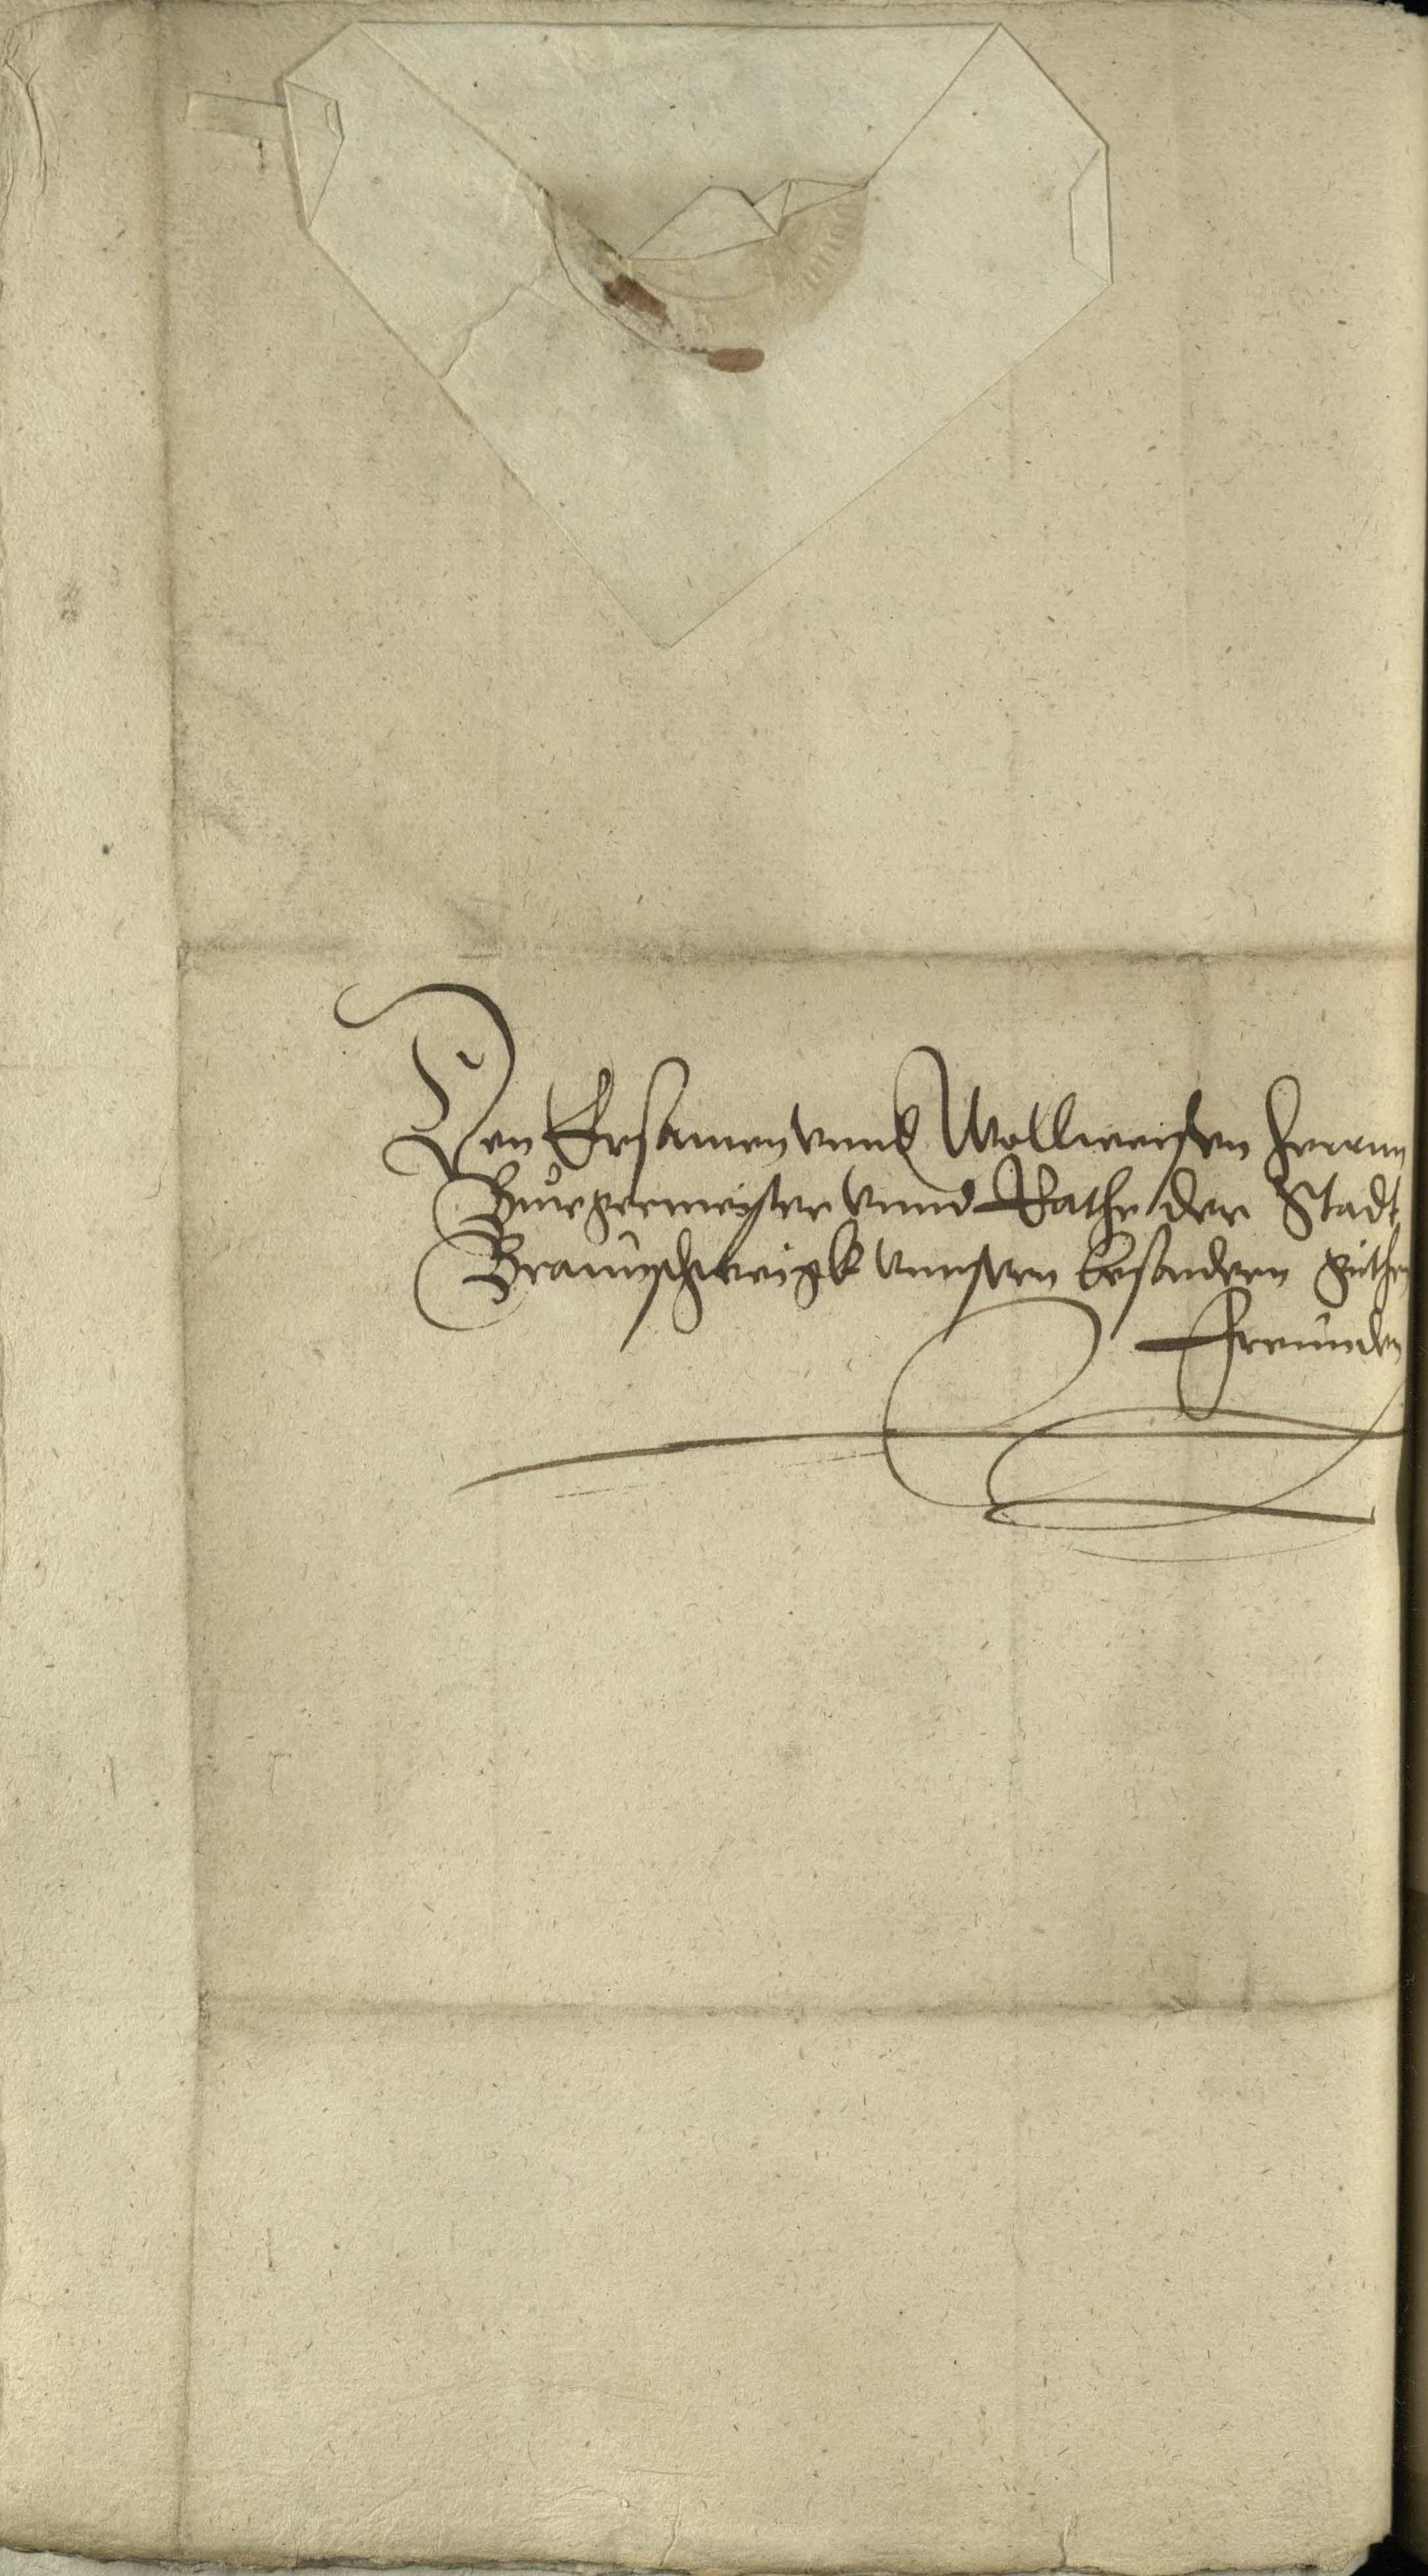 Den Ersamen vnnd Wollweisen herrnn
Burgermeister vnnd Rathe der Stadt
Braunschweigk vnnsern besondern guthen
Freunden